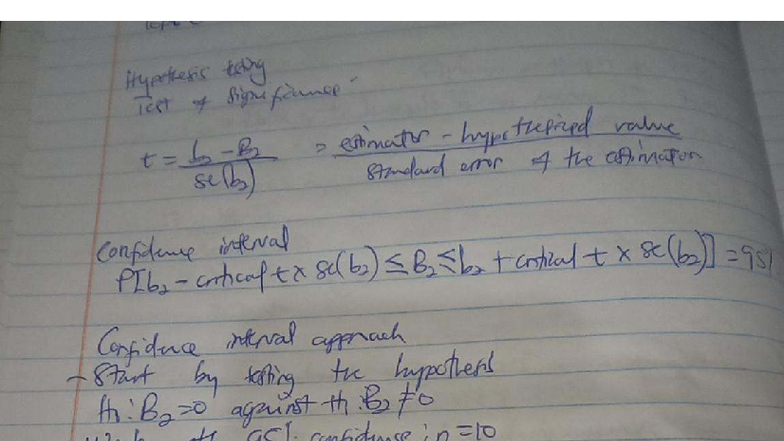 Hypothesis testing
Test of Significance
t = b2 - B2 / se(b2) = estimator - hypothesized value / standard error of the estimator
Confidence interval
P[b2 - critical t x se(b2) ≤ B2 ≤ b2 + critical t x se(b2)] = 95%
Confidence interval approach
- Start by testing the hypothesis
H: B2 = 0 against H: B2 ≠ 0
95% confidence n = 10